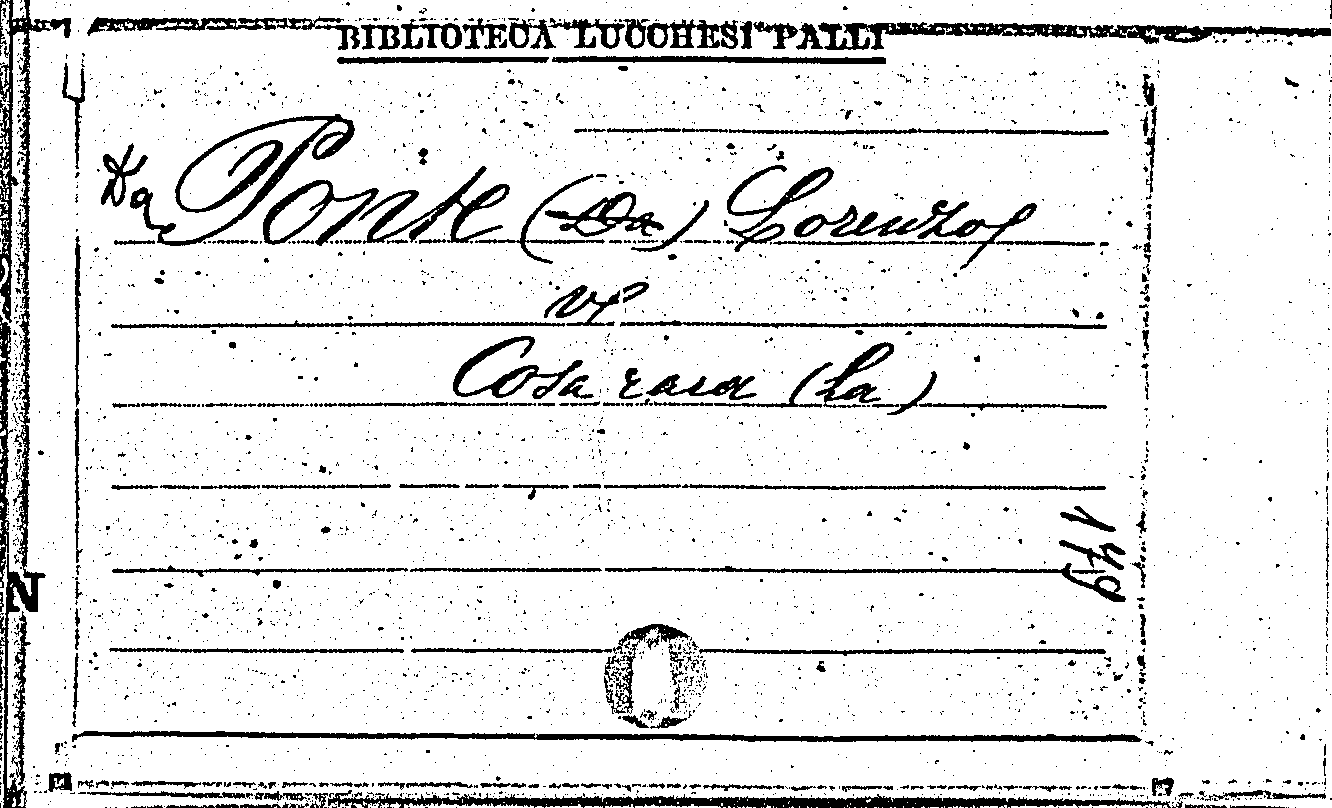 BIBLIOTECA LUCCHESI PALLI
Da Ponte (Da) Lorenzo
vₑ
Cosa rara (La)
179
N